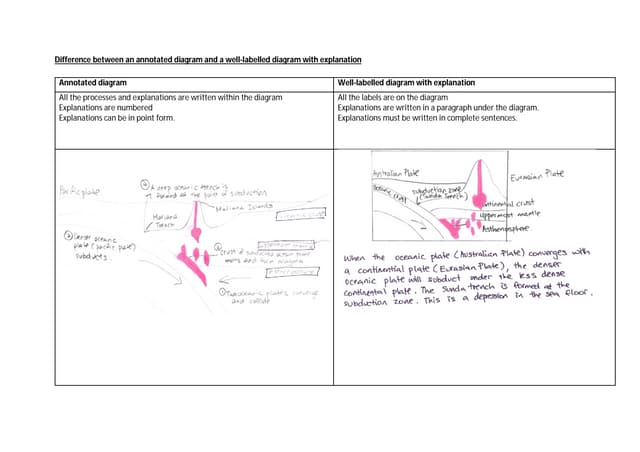 Difference between an annotated diagram and a well-labelled diagram with explanation
Annotated diagram
All the processes and explanations are written within the diagram
Explanations are numbered
Explanations can be in point form.
Well-labelled diagram with explanation
All the labels are on the diagram
Explanations are written in a paragraph under the diagram.
Explanations must be written in complete sentences.
Pacific plate
③ A deep oceanic trench is
formed at the point of subduction
Mariana Islands
Mariana
Trench
② Denser oceanic
plate (Pacific plate)
subducts.
④ Crust of subducted ocean plate
melts and
① Two oceanic plates converge
and collide
Australian Plate
Eurasian Plate
Oceanic crust
Subduction zone
(Sunda Trench)
Continental crust
Uppermost mantle
Asthenosphere
When the oceanic plate (Australian Plate) converges with
a continental plate (Eurasian Plate), the denser
oceanic plate will subduct under the less dense
continental plate. The Sunda trench is formed at the
subduction zone. This is a depression in the sea floor.